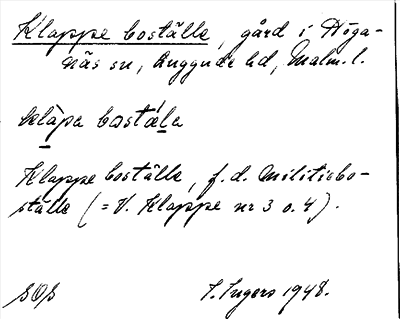 Klappe boställe, gård i Höga-
näs sn, Luggude hd, Malm. l.
klàpa bostǽla
Klappe boställe, f. d. militiebo-
ställe (= V. Klappe nr 3 o. 4).
SOS I. Ingers 1948.